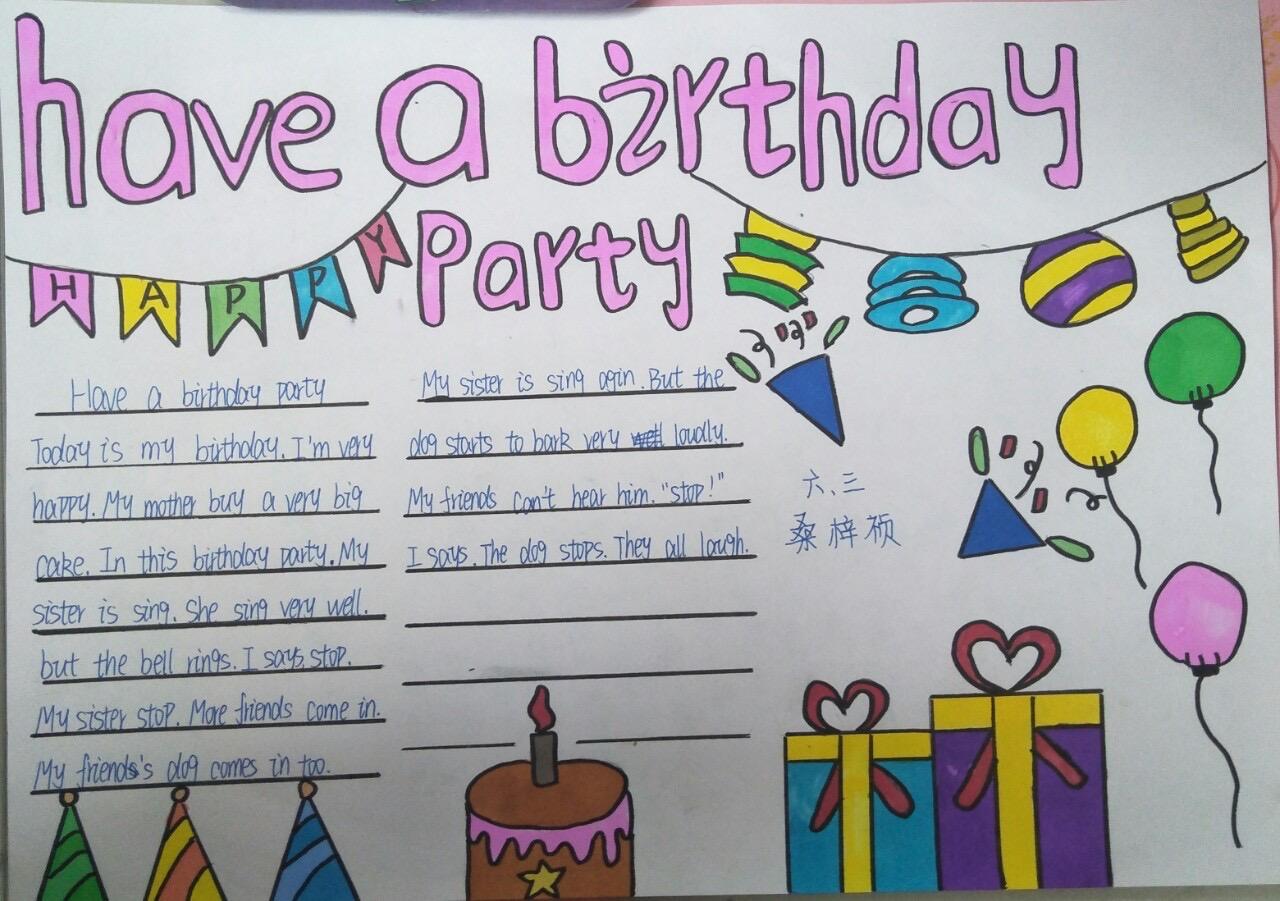 have a birthday
Party
HAPPY
Have a birthday party
Today is my birthday. I'm very
happy. My mother buy a very big
cake. In this birthday party. My
sister is sing. She sing very well.
but the bell rings. I says, stop.
My sister stop. More friends come in.
My friends's dog comes in too.
My sister is sing agin. But the
dog starts to bark very loudly.
My friends can't hear him. "stop!"
I says. The dog stops. They all laugh.
六、三
桑梓祯